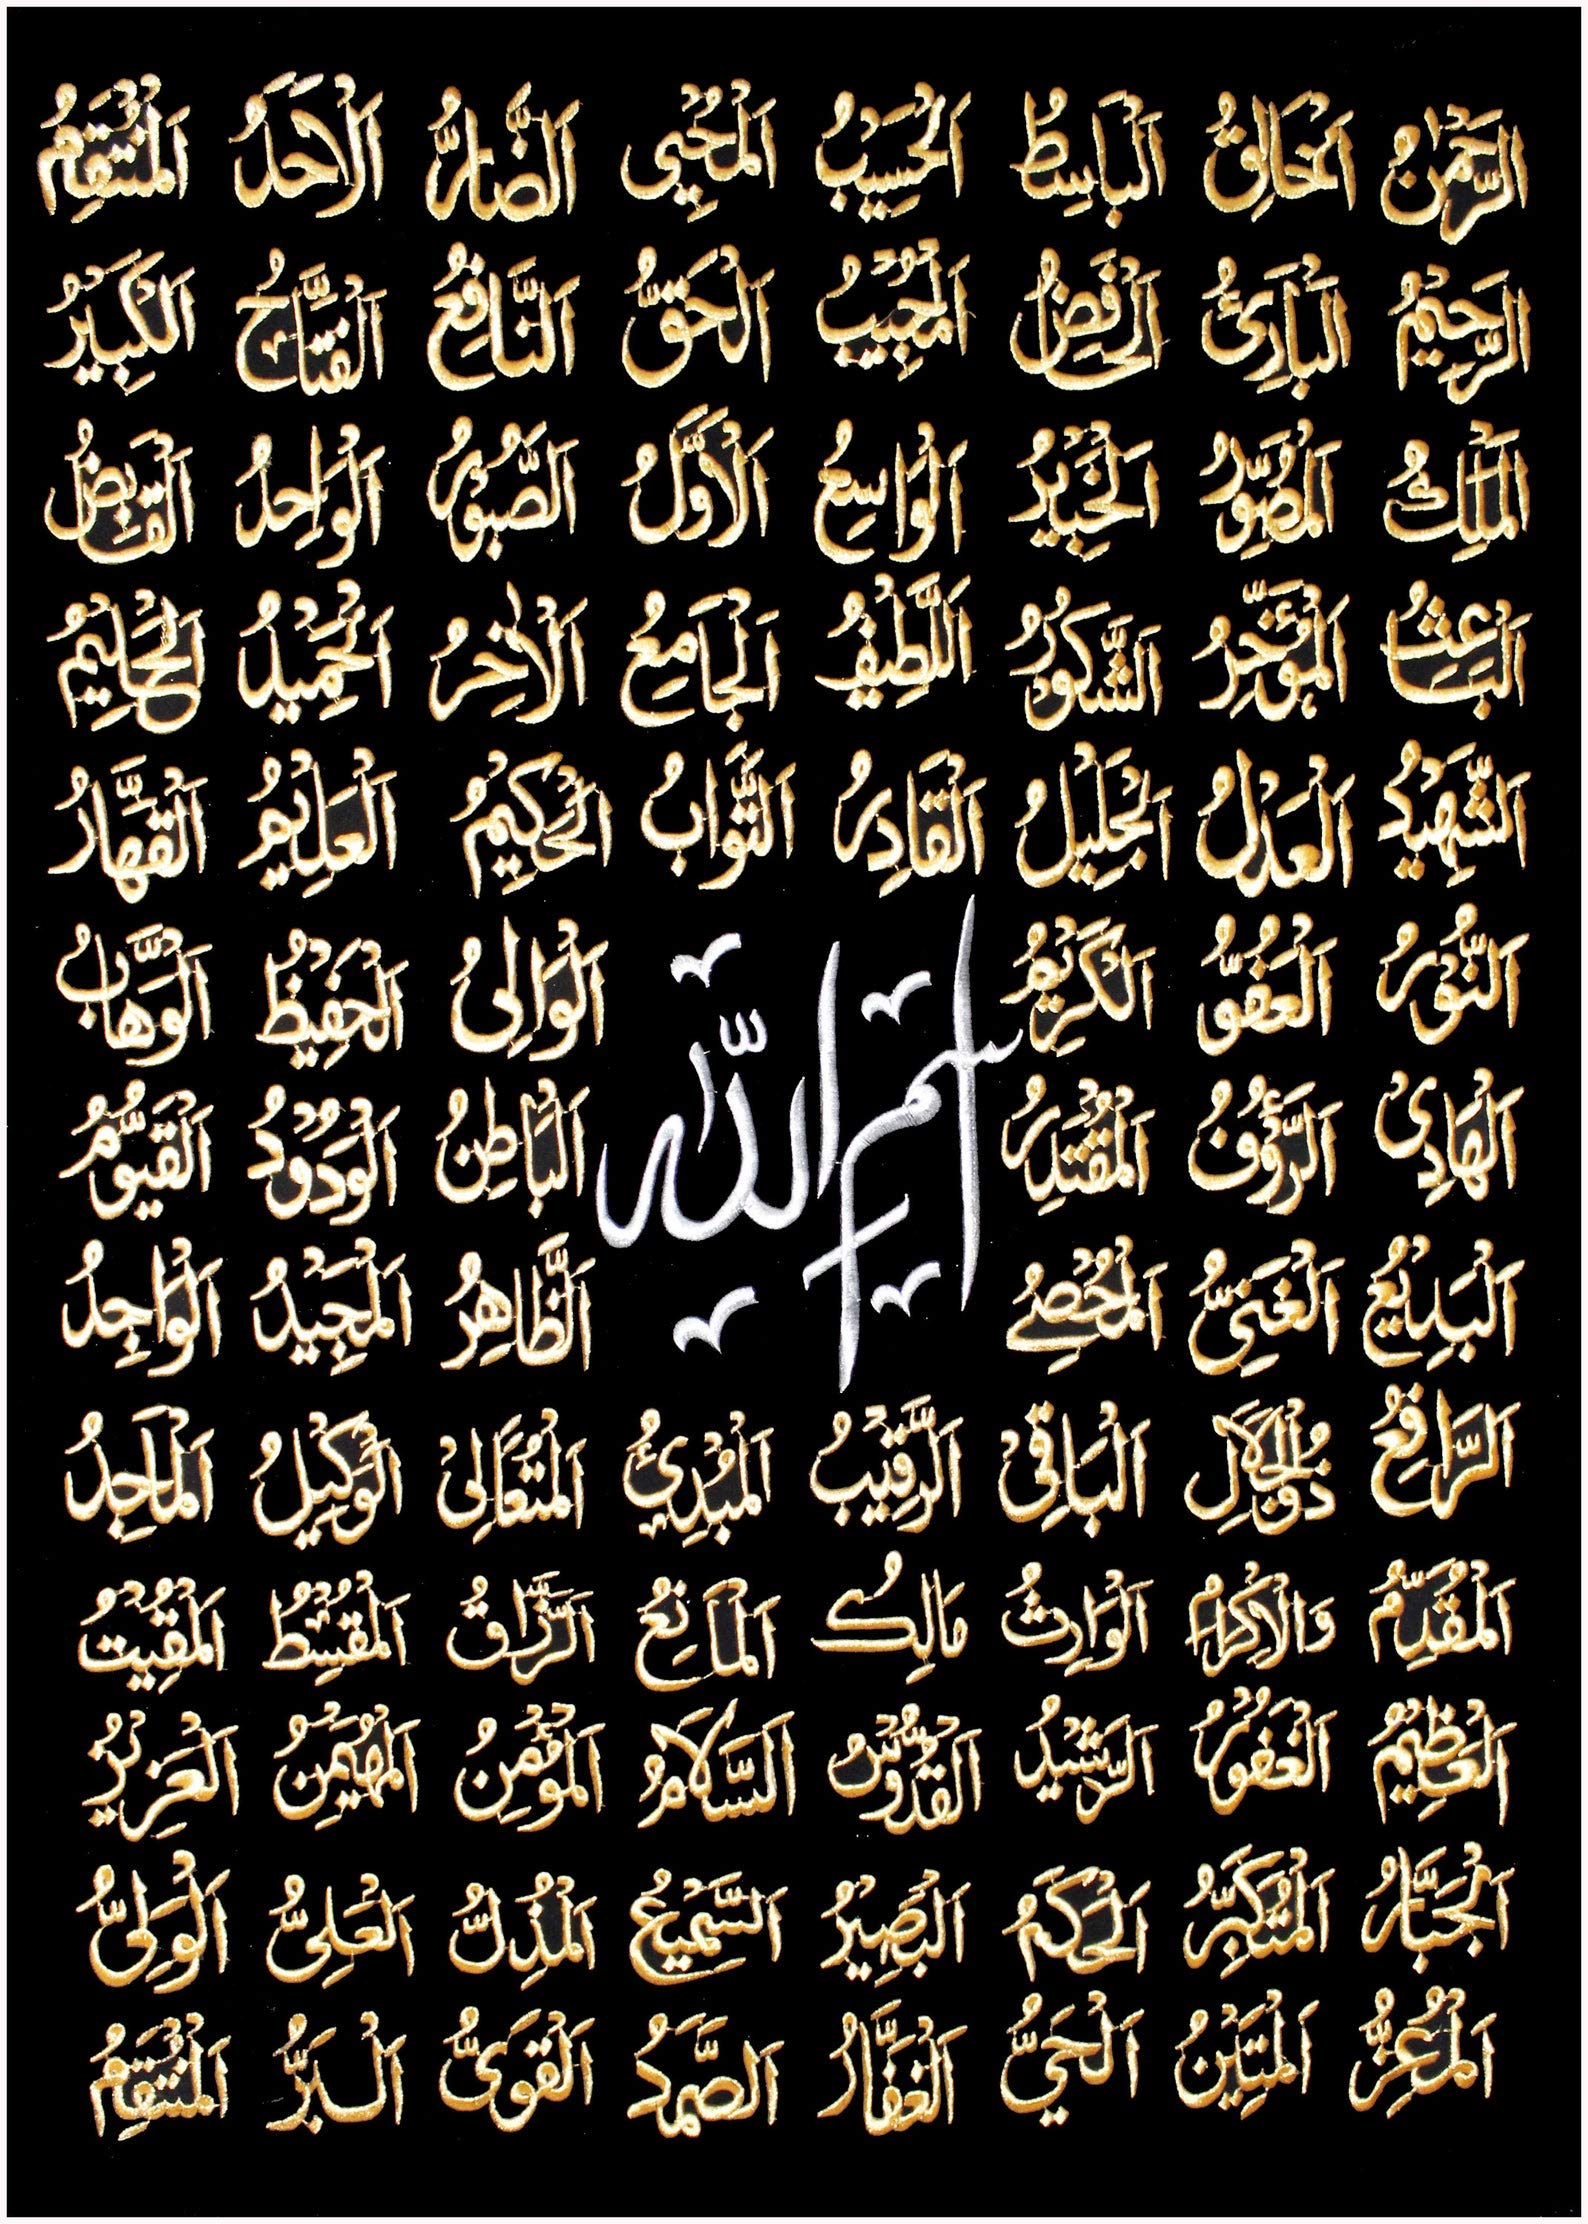 اَلرَّحْمٰنُ اَلْخَالِقُ اَلْبَاسِطُ اَلْحَسِيْبُ اَلْمُحْيِي اَلضَّارُّ اَلْاَحَدُ اَلْمُنْتَقِمُ
اَلرَّحِيْمُ اَلْبَارِئُ اَلْخَافِضُ اَلْمُجِيْبُ اَلْحَقُّ اَلنَّافِعُ اَلْفَتَّاحُ اَلْكَبِيْرُ
اَلْمَلِكُ اَلْمُصَوِّرُ اَلْخَبِيْرُ اَلْوَاسِعُ اَلْاَوَّلُ اَلصَّبُوْرُ اَلْوَاحِدُ اَلْقَابِضُ
اَلْبَاعِثُ اَلْمُؤَخِّرُ اَلشَّكُوْرُ اَللَّطِيْفُ اَلْجَامِعُ اَلْاٰخِرُ اَلْحَمِيْدُ اَلْحَلِيْمُ
اَلشَّهِيْدُ اَلْعَدْلُ اَلْجَلِيْلُ اَلْقَادِرُ اَلتَّوَّابُ اَلْحَكِيْمُ اَلْعَلِيْمُ اَلْقَهَّارُ
اَلنُّوْرُ اَلْعَفُوُّ اَلْكَرِيْمُ اَلْوَالِيُ اَلْحَفِيْظُ اَلْوَهَّابُ
اسم اللّٰه
اَلْهَادِيْ اَلرَّؤُوْفُ اَلْمُقْتَدِرُ اَلْبَاطِنُ اَلْوَدُوْدُ اَلْقَيُّوْمُ
اَلْبَدِيْعُ اَلْغَنِيُّ اَلْمُحْصِيْ اَلظَّاهِرُ اَلْمَجِيْدُ اَلْوَاجِدُ
اَلرَّافِعُ ذُوالْجَلَالِ اَلْبَاقِيْ اَلرَّقِيْبُ اَلْمُبْدِئُ اَلْمُتَعَالِيْ اَلْوَكِيْلُ اَلْمَاجِدُ
اَلْمُقَدِّمُ وَالْاِكْرَامِ اَلْوَارِثُ مَالِكُ اَلْمَانِعُ اَلرَّزَّاقُ اَلْمُقْسِطُ اَلْمُقِيْتُ
اَلْعَظِيْمُ اَلْغَفُوْرُ اَلرَّشِيْدُ اَلْقُدُّوْسُ اَلسَّلَامُ اَلْمُؤْمِنُ اَلْمُهَيْمِنُ اَلْعَزِيْزُ
اَلْجَبَّارُ اَلْمُتَكَبِّرُ اَلْحَكَمُ اَلْبَصِيْرُ اَلسَّمِيْعُ اَلْمُذِلُّ اَلْعَلِيُّ اَلْوَلِيُّ
اَلْمُعِزُّ اَلْمَتِيْنُ اَلْحَيُّ اَلْغَفَّارُ اَلصَّمَدُ اَلْقَوِيُّ اَلْبَرُّ اَلْمُنْتَقِمُ